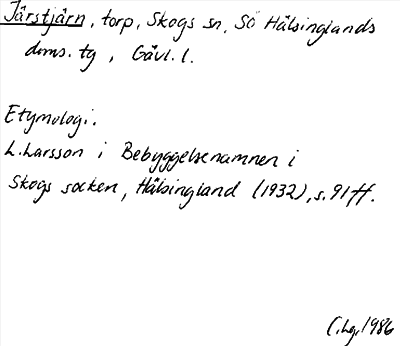 Järstjärn, torp, Skogs sn, Sö Hälsinglands
doms. tg, Gävl. l.
Etymologi.
L. Larsson i Bebyggelsenamnen i
Skogs socken, Hälsingland (1932), s. 91 ff.
1986